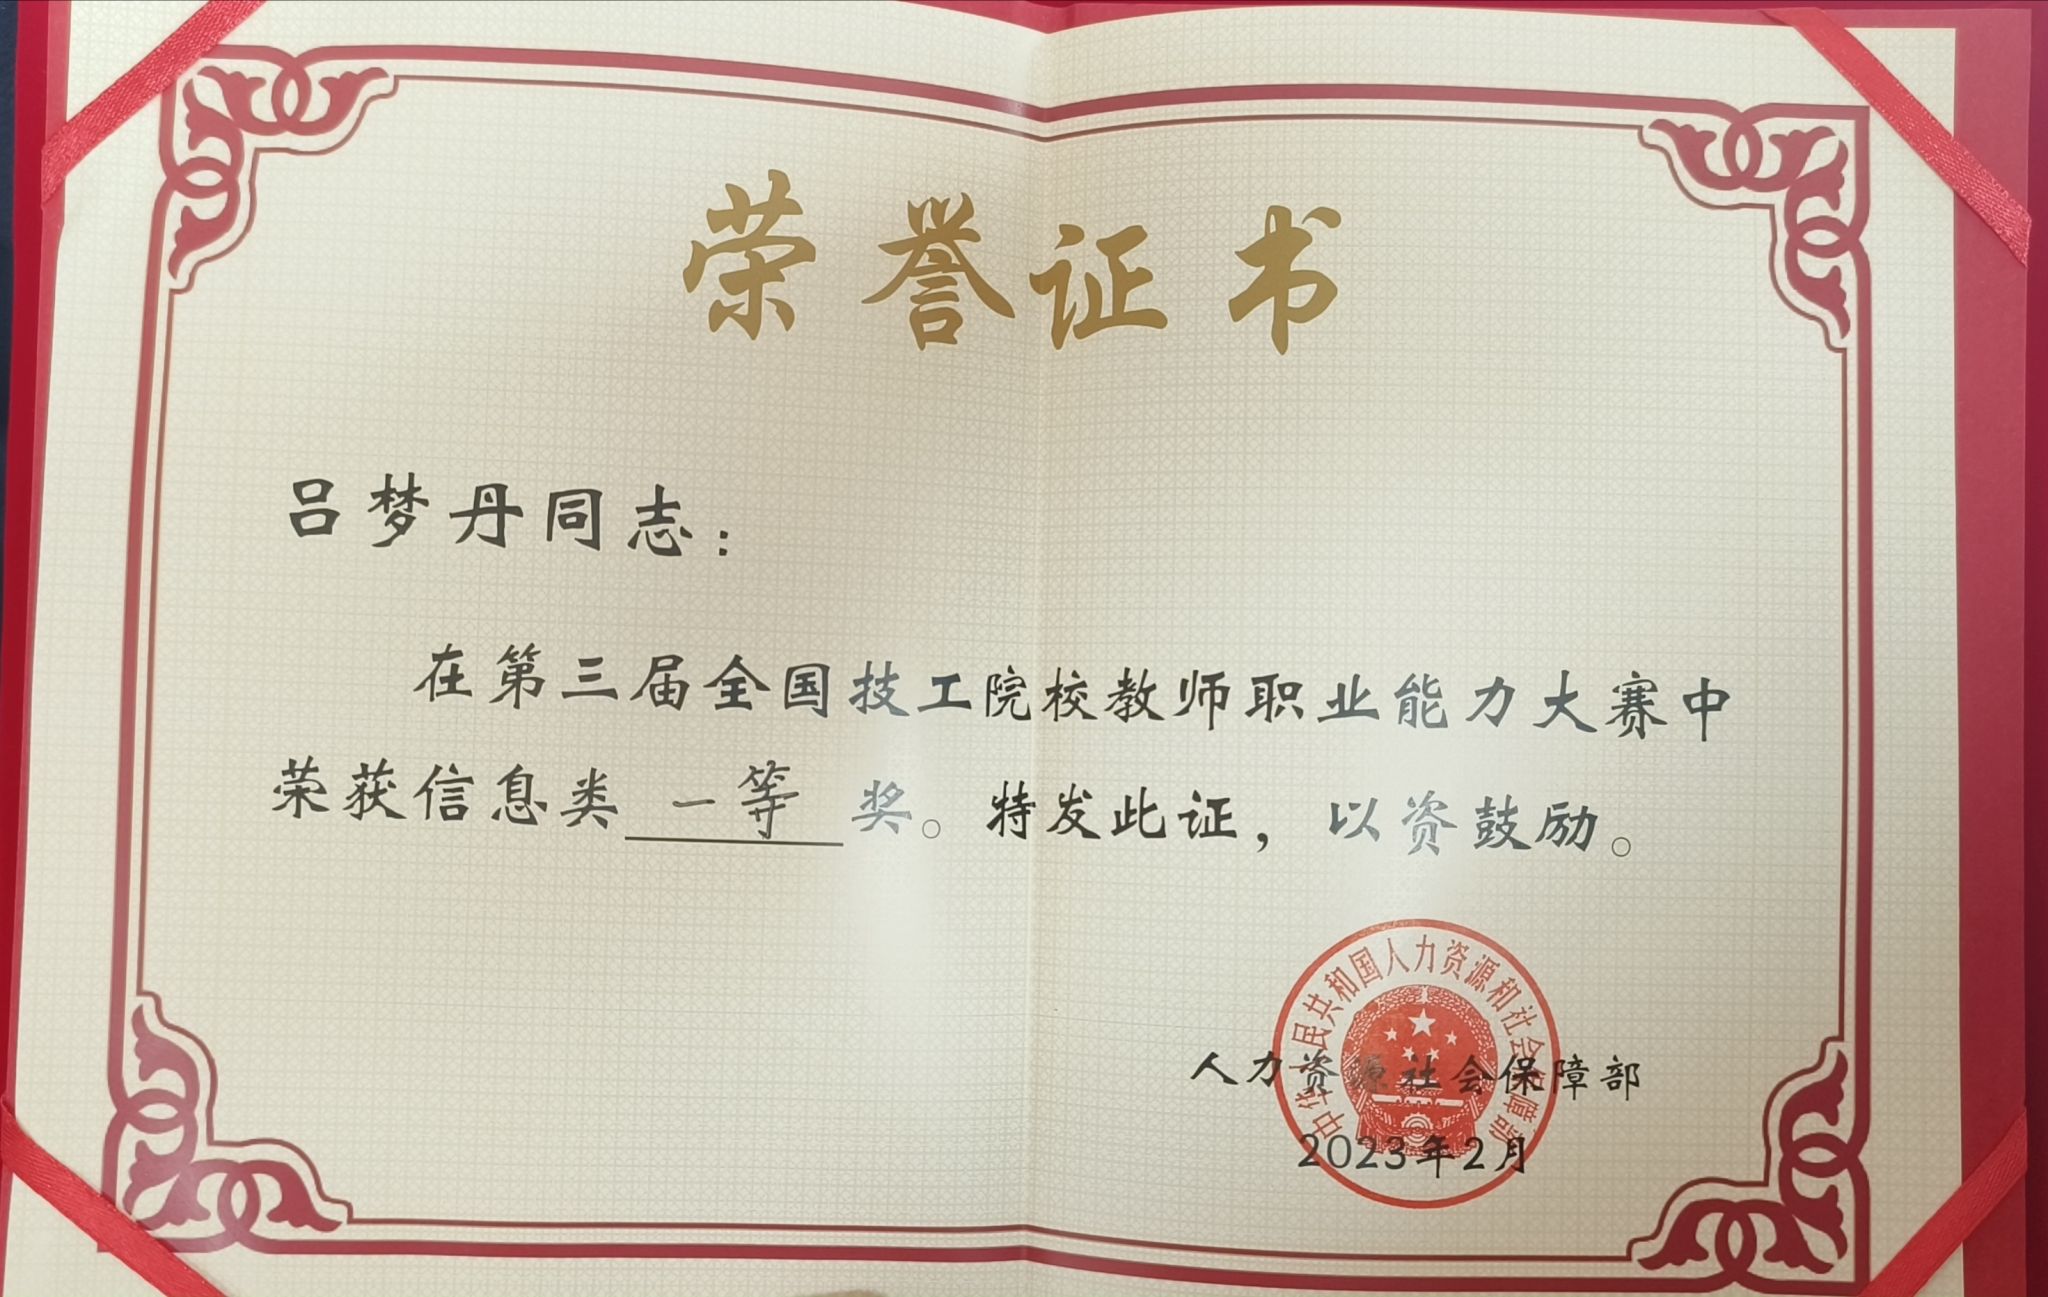 荣誉证书
吕梦丹同志：
在第三届全国技工院校教师职业能力大赛中
荣获信息类 一等 奖。特发此证，以资鼓励。
中华人民共和国人力资源和社会保障部
人力资源社会保障部
2023年2月